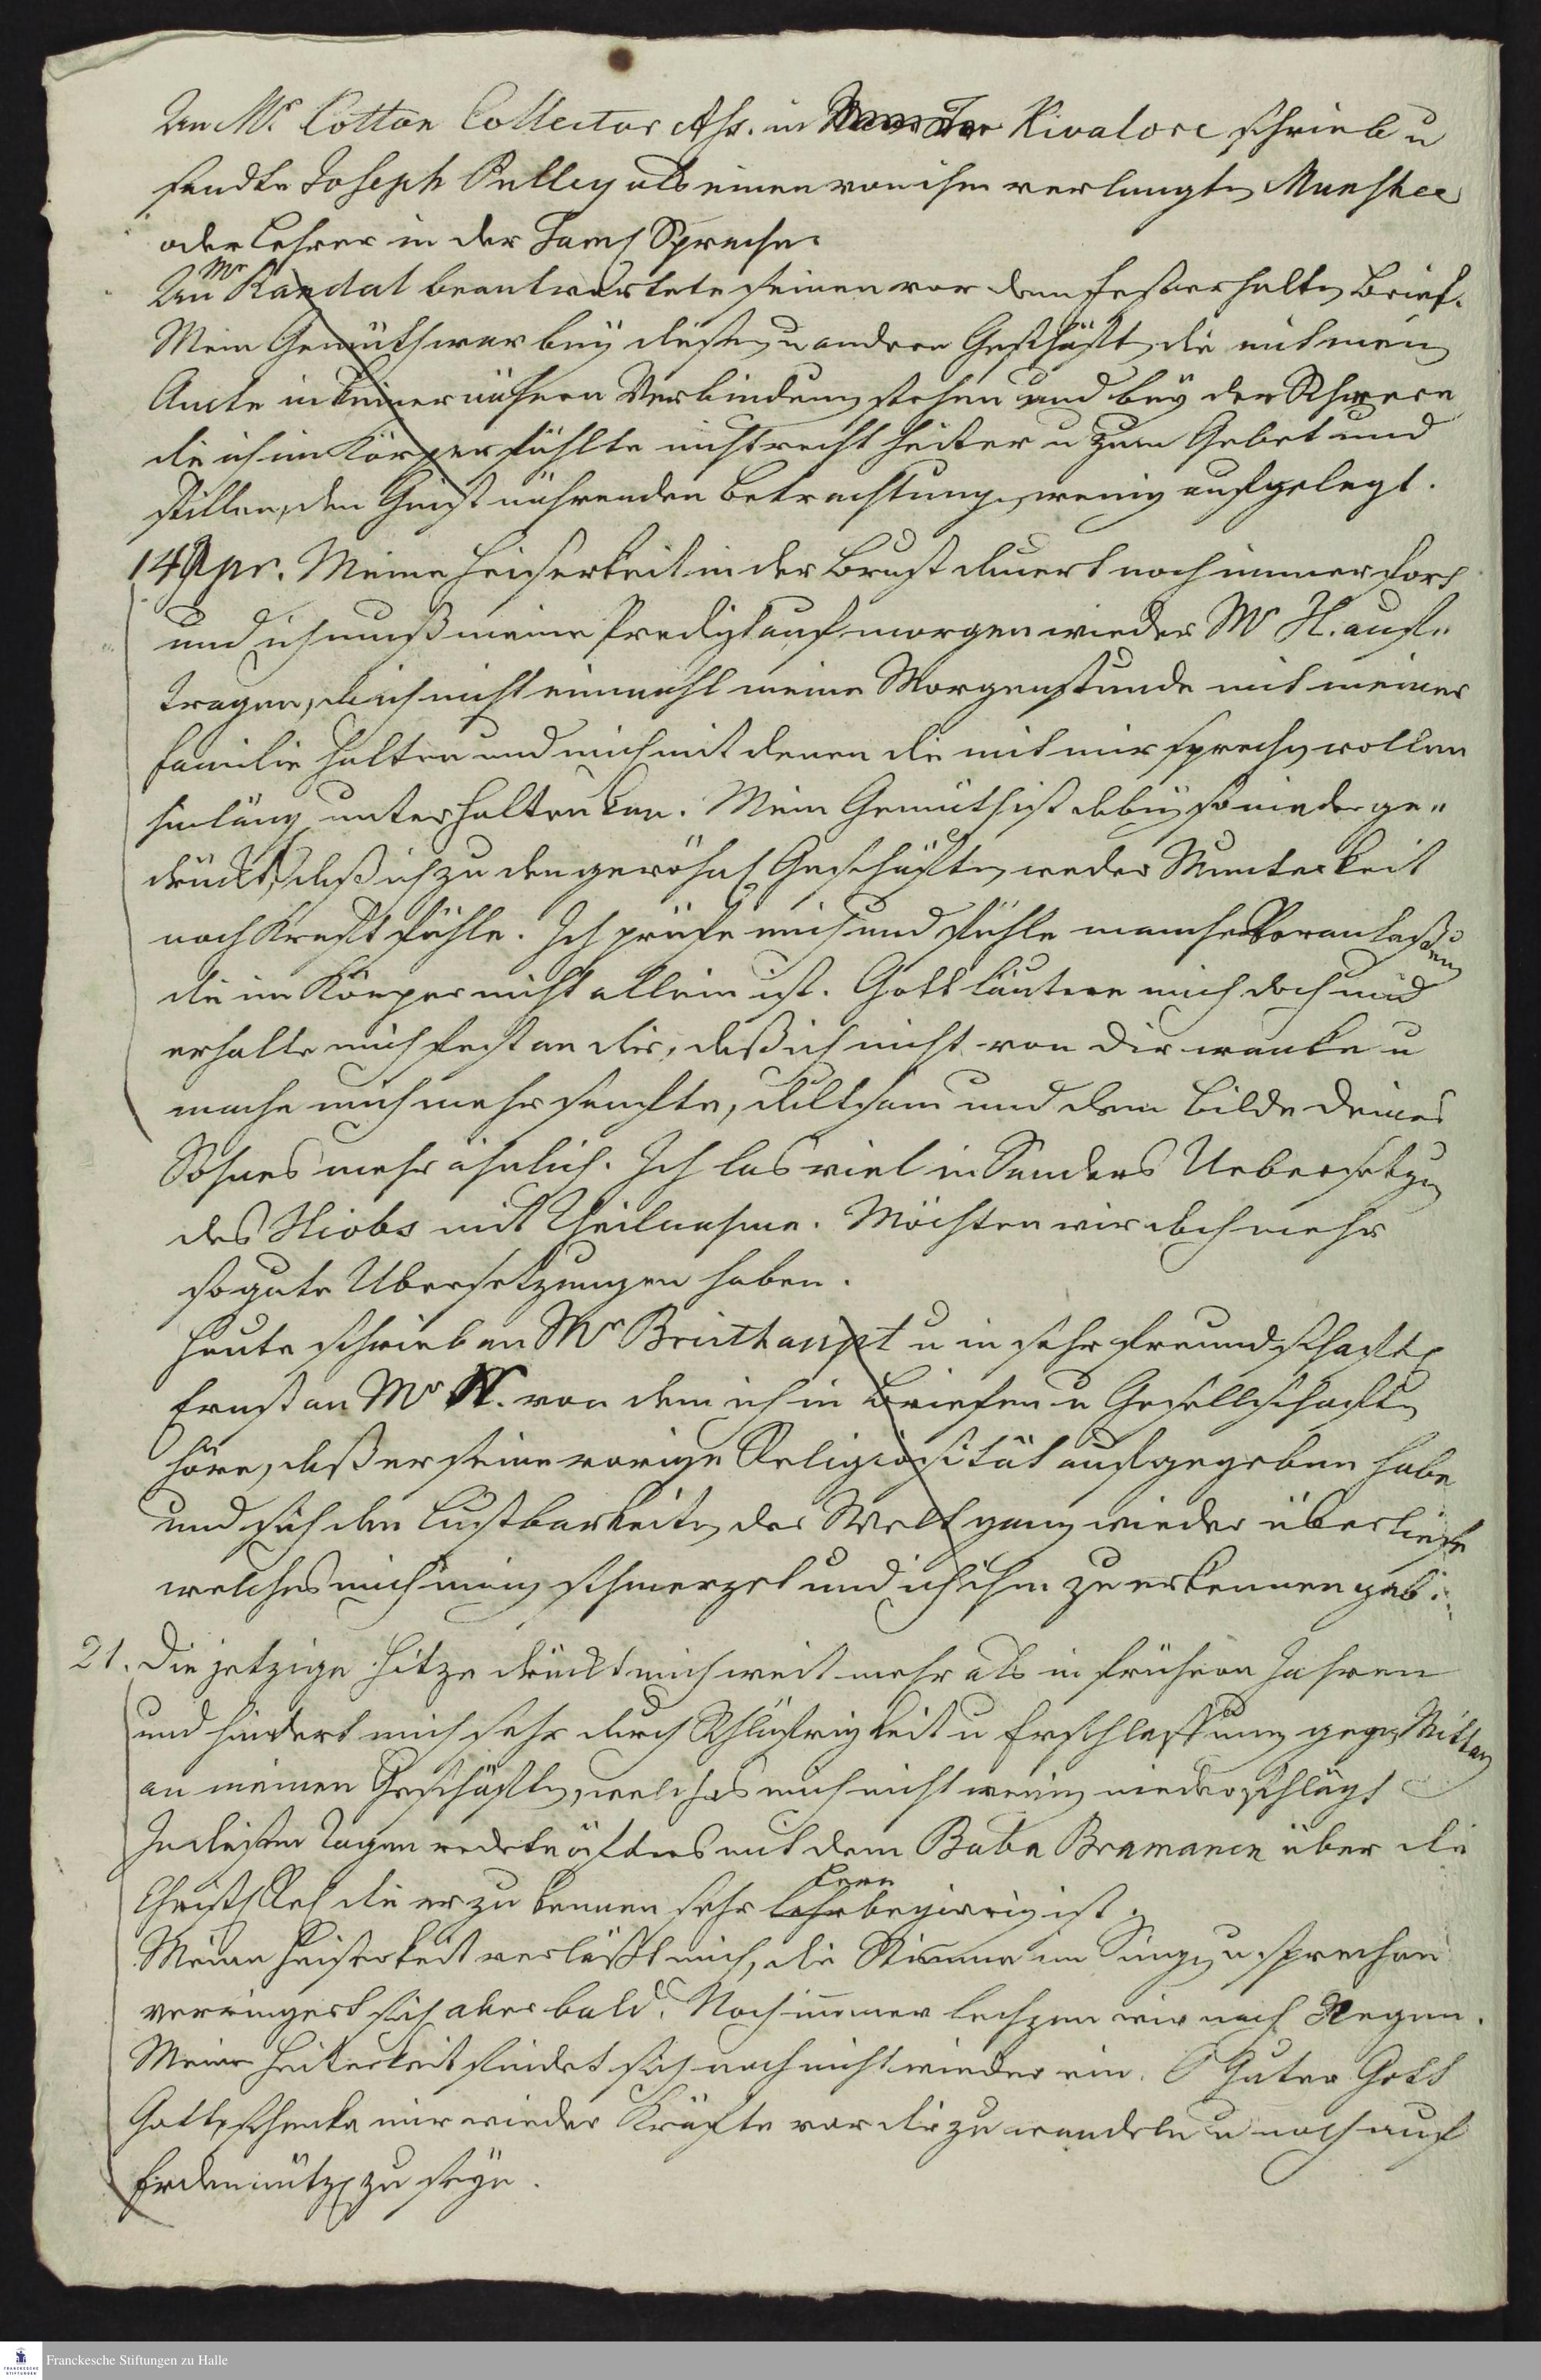 An Mr. Cotton Collector Ass. in Kivalore schrieb u
sandte Joseph Pulley als einen von ihm verlangten Munshee
oder Lehrer in der Taml Sprache.
An Mr Randal beantwortete seinen vor dem Fest erhaltn Brief.
Mein Gemüth war bey diesen u andern Geschäften die mit mein
Amte in keiner nähern Verbindung stehen und bey der Schwere
die ich im Körper fühlte nicht recht heiter u zum Gebet und
stillen, den Geist nährenden Betrachtungen wenig aufgelegt.
14 Apr. Meine Heiserkeit in der Brust dauert noch immer fort
und ich muß meine Predigt auf morgen wieder Mr H. auf=
tragen, da ich nicht einmahl meine Morgenstunde mit meiner
Familie halten und mich mit denen die mit mir sprechen wollen
hinläng unterhalten kan. Mein Gemüth ist dabey so niederge=
drückt, daß ich zu den gewöhnl Geschäften weder Munterkeit
noch Kraft fühle. Ich prüfe mich und fühle manche Veranlaßung
die im Körper nicht allein ist. Gott läutere mich doch und
erhalte mich fest an dir, daß ich nicht von Dir wanke u
mache mich mehr sanfte, duldsam und dem Bilde Deines
Sohnes mehr ähnlich. Ich las viel in Sanders Uebersetzung
des Hiobs mit Theilnahme. Möchten wir doch mehr
so gute Ubersetzungen haben.
Heute schrieb an Mr Breithaupt u in sehr freundschaftl
Ernst an Mr N. von dem ich in Briefen u Gesellschaften
höre, daß er seine vorige Religiosität aufgegeben habe
und sich den Lustbarkeiten der Welt ganz wieder überließe
welches mich innig schmerzet und ich ihm zu erkennen gab.
21. Die jetzige Hitze drückt mich weit mehr als in frühern Jahren
und hindert mich sehr durch Schläfrigkeit u Erschlaffung gegen Mittag
an meinen Geschäften, welches mich nicht wenig niederschlägt
In diesen Tagen redete öfters mit dem Baba Bramanen über die
Christl Rel die er zu kennen sehr lernbegierig ist.
Meine Heiserkeit verläßt mich, die Stimme im Singen u sprechen
verringert sich aber bald. Noch immer lechzen wir nach Regen.
Meine Heiterkeit findet sich noch nicht wieder ein. O Guter Gott
Gott, schenke mir wieder Kräfte vor dir zu wandeln u noch auf
Erden nützl zu seyn.
Franckesche Stiftungen zu Halle